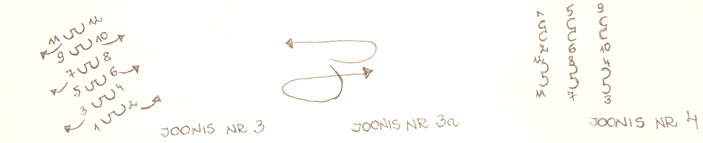 11 12
9 10
7 8
5 6
3 4
1 2
JOONIS NR 3
JOONIS NR 3a
1 5 9
2 6 10
12 8 4
11 7 3
JOONIS NR 4